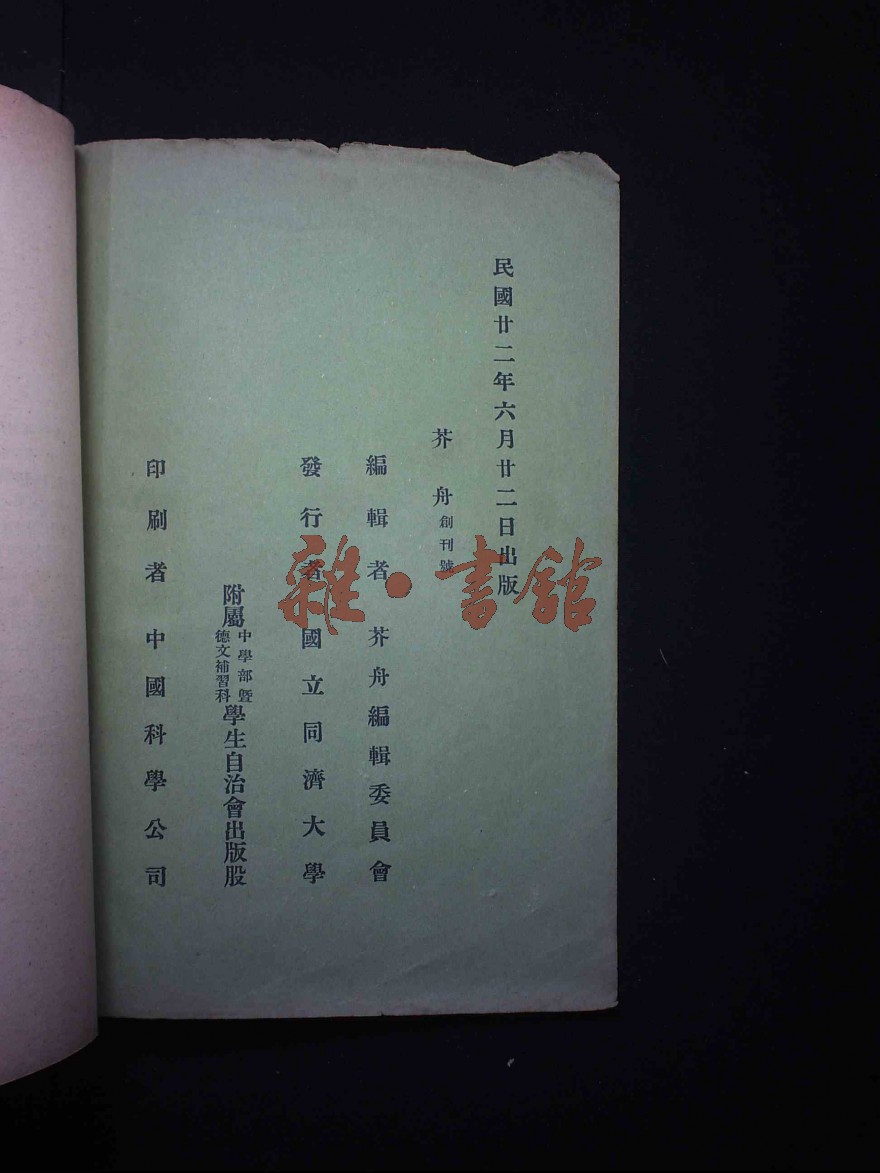 民國廿二年六月廿二日出版
芥舟創刊號
編輯者 芥舟編輯委員會
發行者 國立同濟大學
附屬中學部暨德文補習科學生自治會出版股
印刷者 中國科學公司
雜·書館